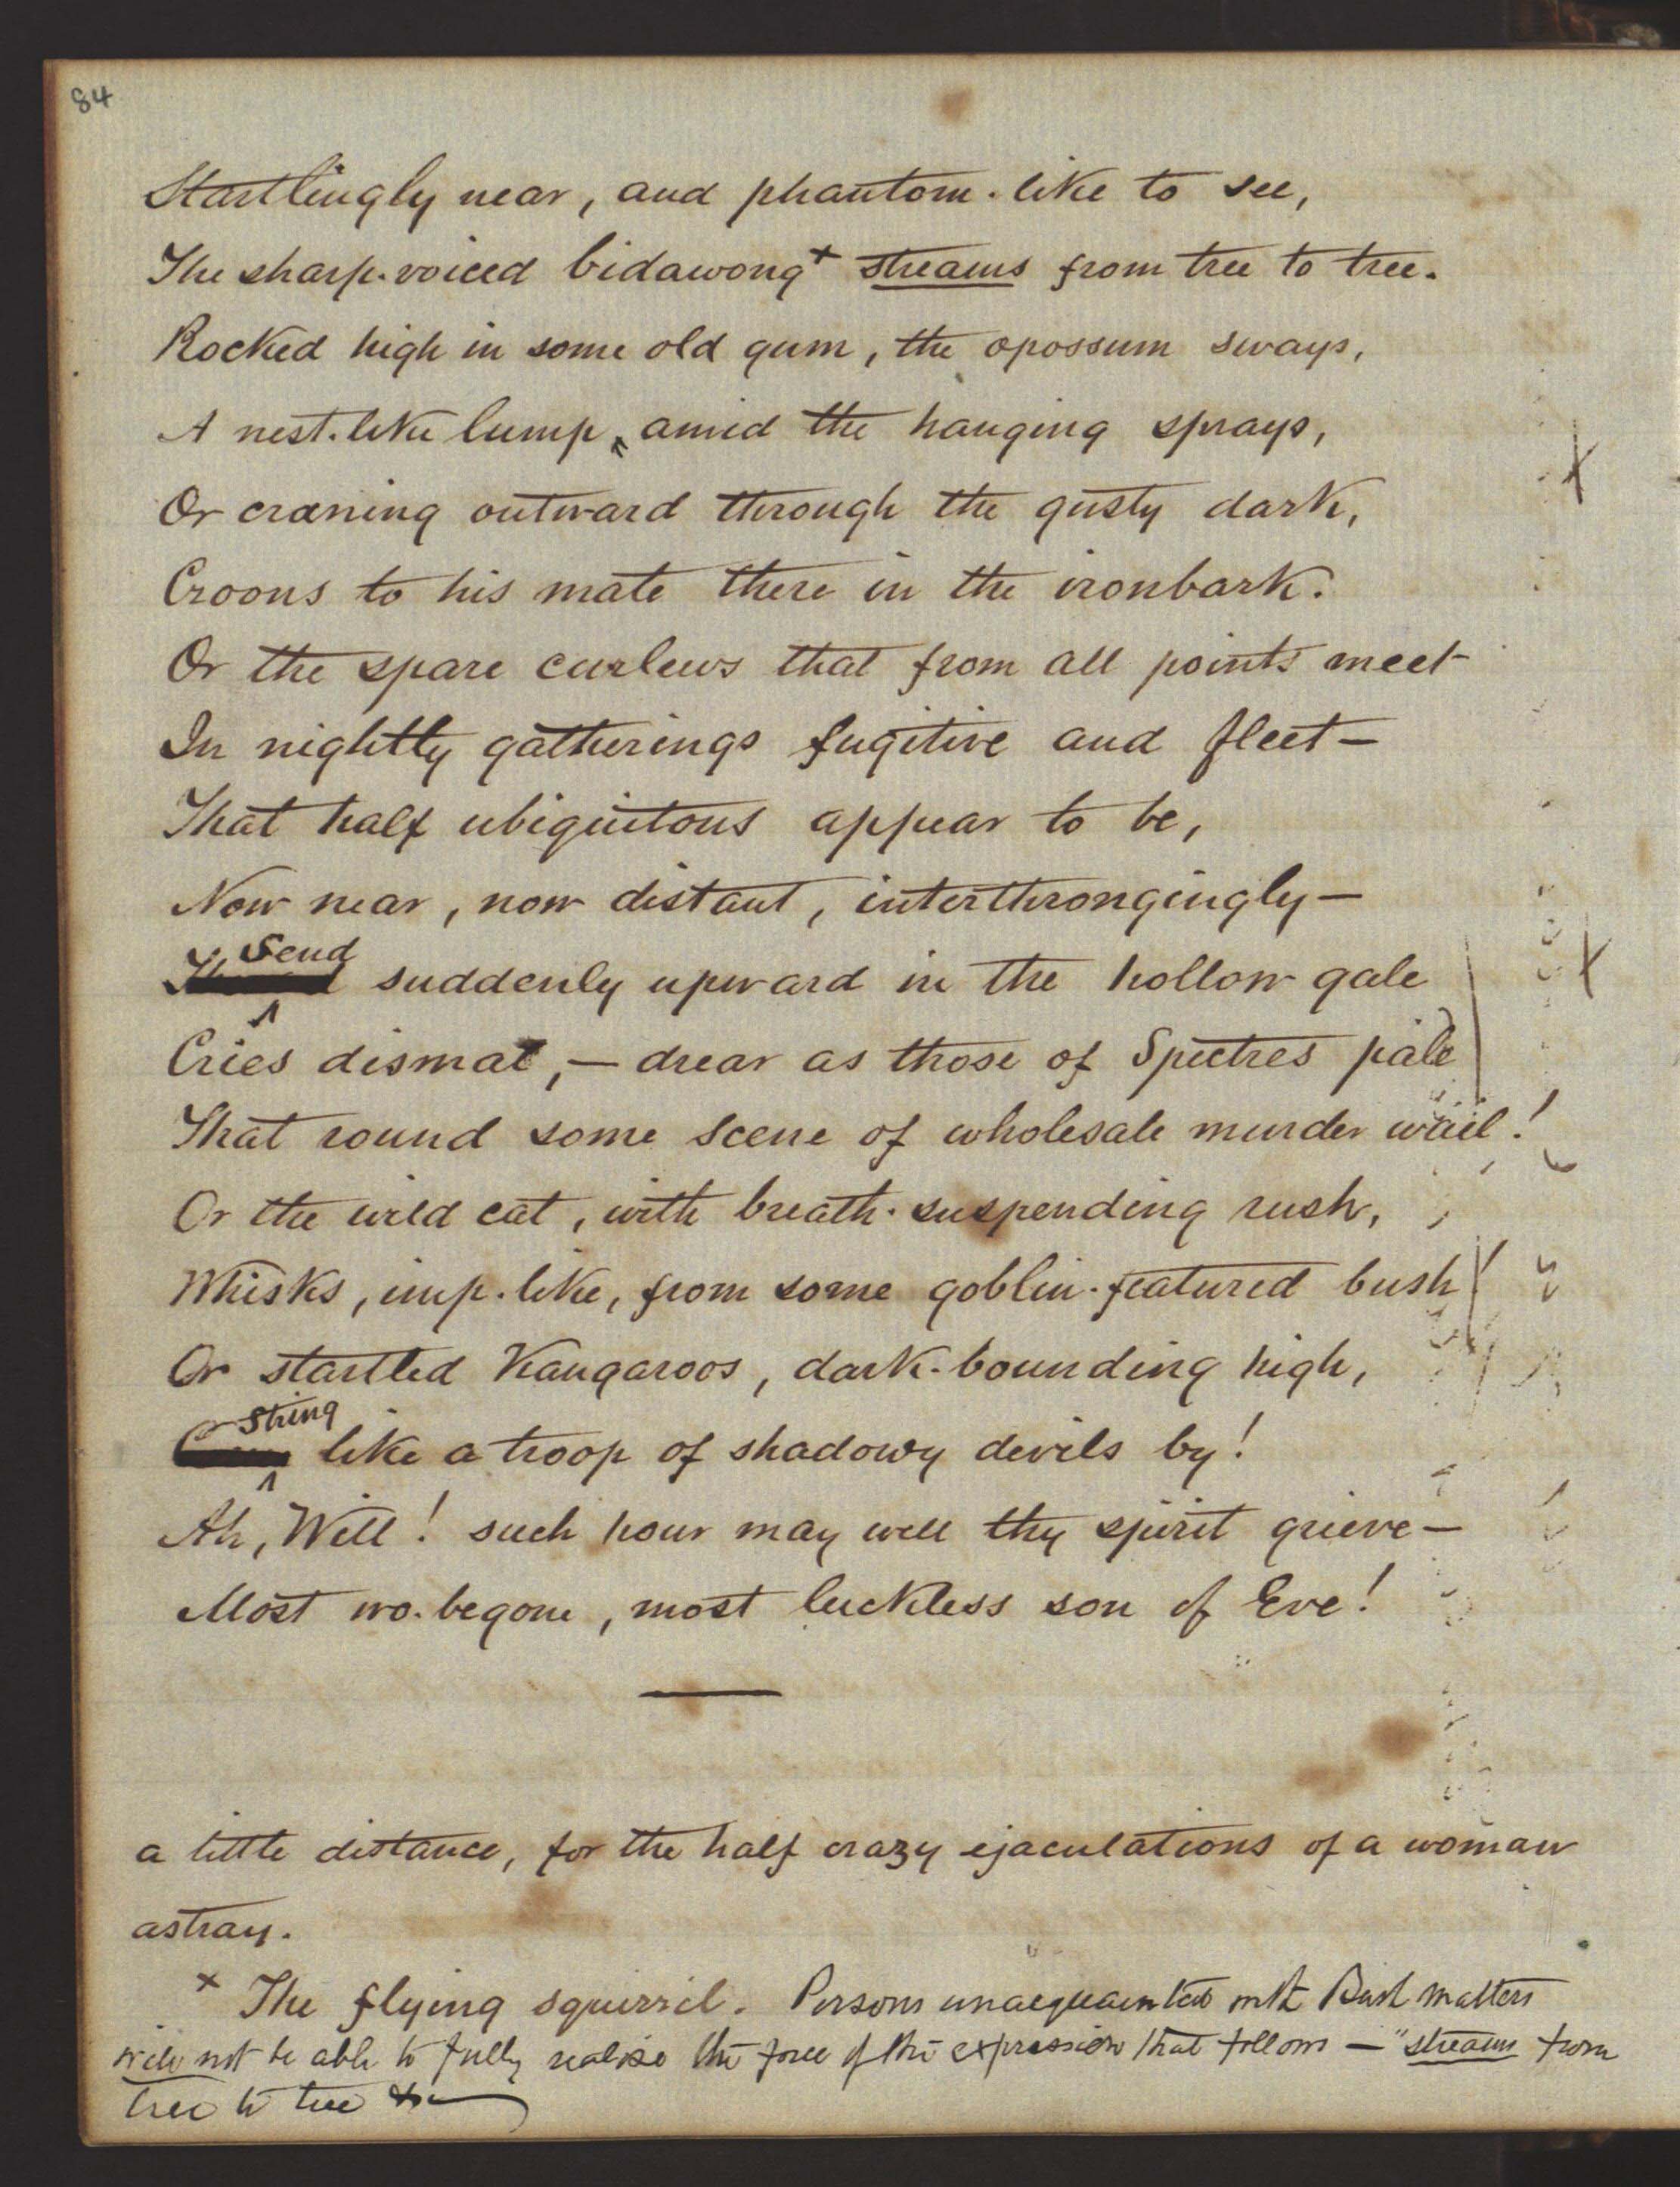 84
Startlingly near, and phantom-like to see,
The sharp-voiced bidawong+ streams from tree to tree.
Rocked high in some old gum, the opossum sways,
A nest-like lump, amid the hanging sprays,
Or craning outward through the gusty dark,
Croons to his mate there in the ironbark.
Or the spare curlews that from all points meet
In nightly gatherings fugitive and fleet—
That half ubiquitous appear to be,
Now near, now distant, interthrongingly—
Send
suddenly upward in the hollow gale
Cries dismal,—drear as those of Spectres pale
That round some scene of wholesale murder wail!
Or the wild cat, with breath-suspending rush,
Whisks, imp-like, from some goblin-featured bush!
Or startled Kangaroos, dark-bounding high,
String
like a troop of shadowy devils by!
Ah, Will! such hour may well thy spirit grieve—
Most wo-begone, most luckless son of Eve!
a little distance, for the half crazy ejaculations of a woman
astray.
+ The flying squirrel. Persons unacquainted with Bush matters
will not be able to fully realise the force of the expression that follows — "streams from
tree to tree &c